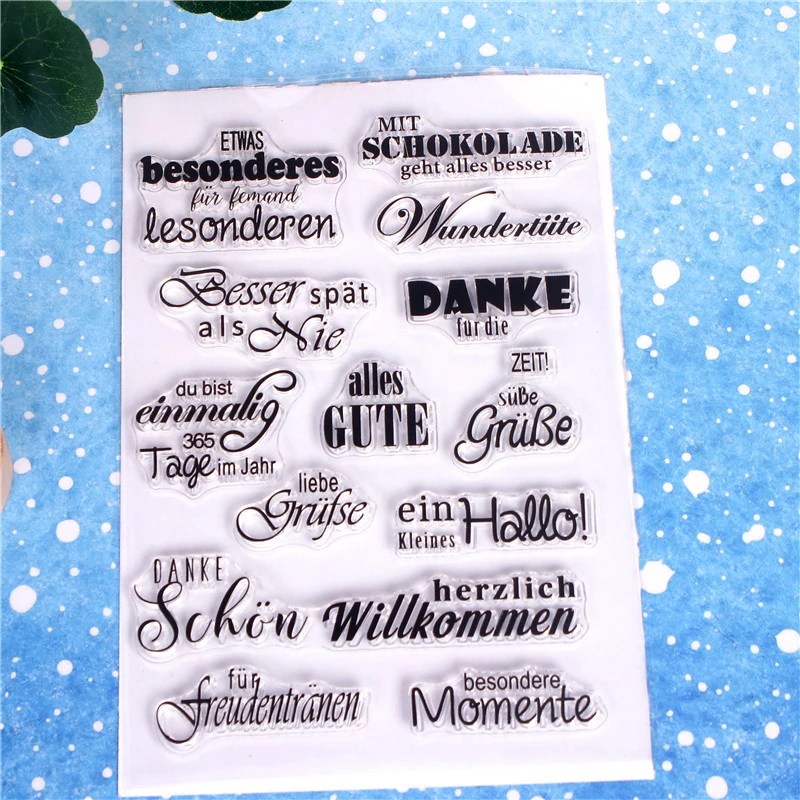 ETWAS
besonderes
für femand
lesonderen
MIT
SCHOKOLADE
geht alles besser
Wundertüte
Besser spät
als Nie
DANKE
für die
ZEIT!
du bist
einmalig
365
Tage im Jahr
alles
GUTE
süße
Grüße
liebe
Grüfse
ein
Kleines
Hallo!
DANKE
Schön
herzlich
Willkommen
für
freudentränen
besondere
Momente